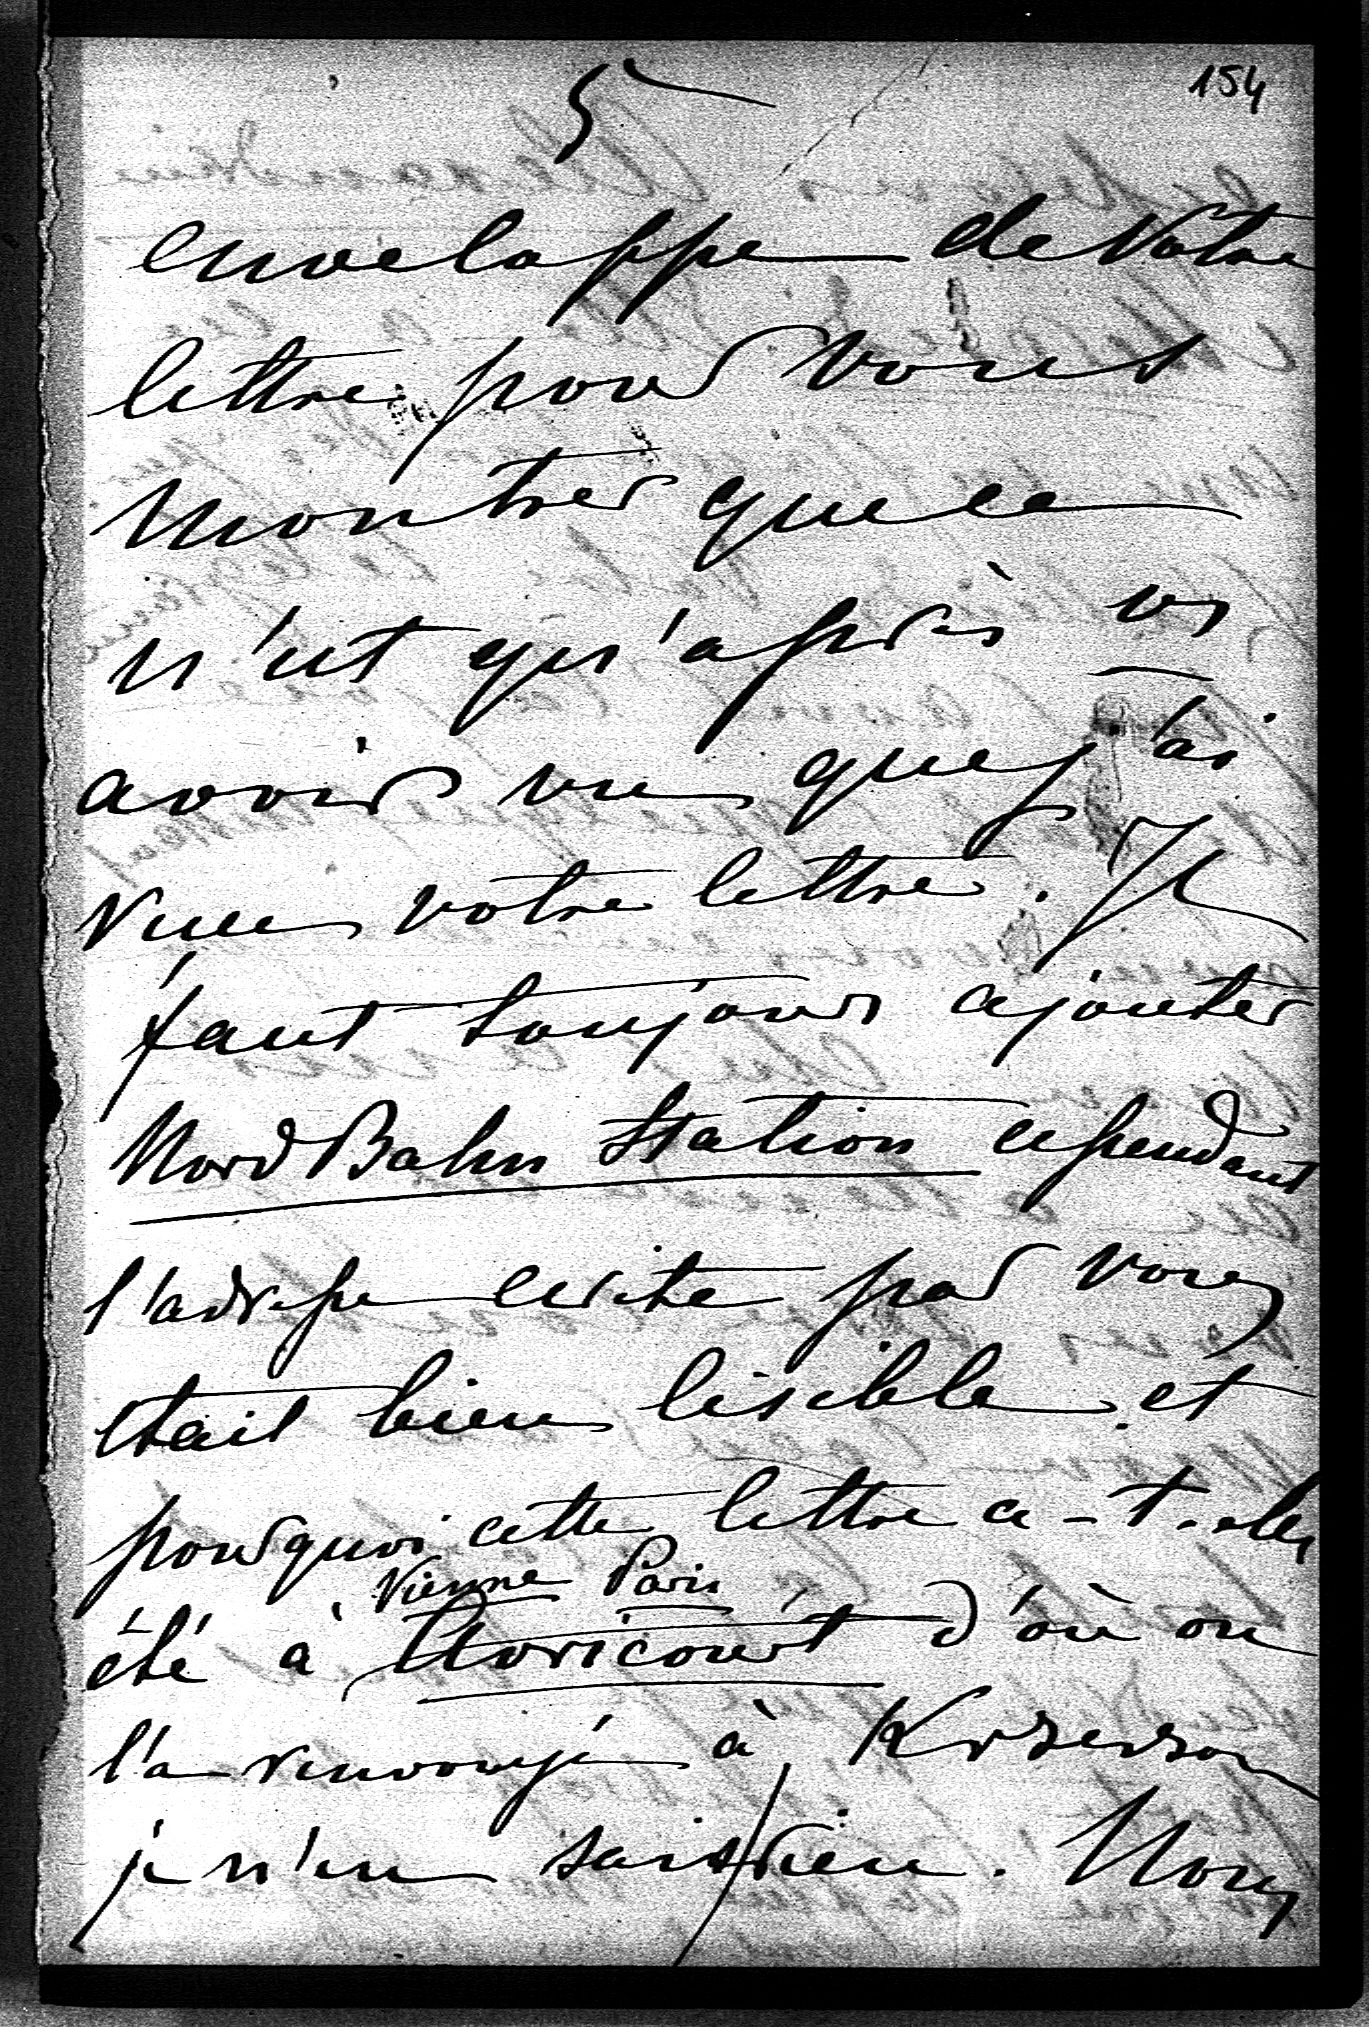 154
5
enveloppe de votre
lettre pour vous
montrer que ce
n'est qu'après vs
avoir vu que j'ai
vue votre lettre. Il
faut toujours ajouter
Nord Bahn Station cependant
l'adresse ecrite par vous
etait bien lisible et
pourquoi cette lettre a-t-elle
Vienne Paris
été à Avricourt d'où on
l'a renvoyé à
je n'en sais rien. Nous